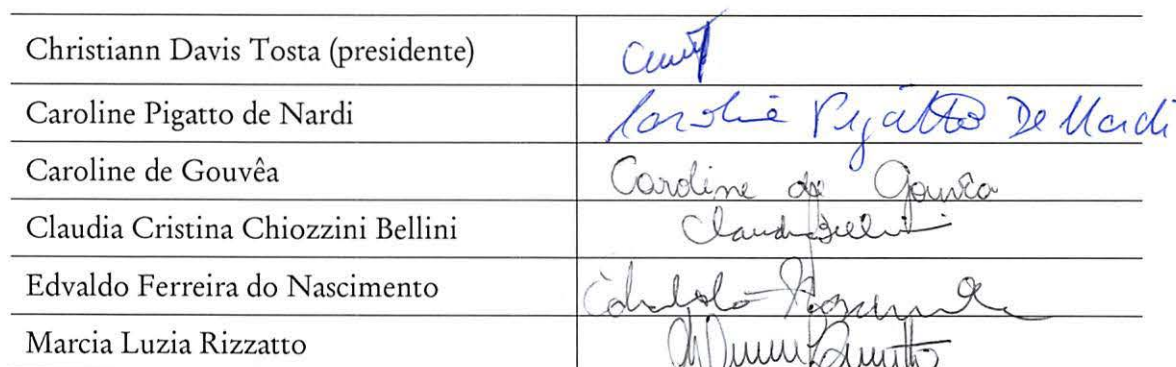 Christiann Davis Tosta (presidente)
Caroline Pigatto de Nardi Caroline Pigatto De Nardi
Caroline de Gouvêa Caroline de Gouvêa
Claudia Cristina Chiozzini Bellini Claudia Bellini
Edvaldo Ferreira do Nascimento
Marcia Luzia Rizzatto